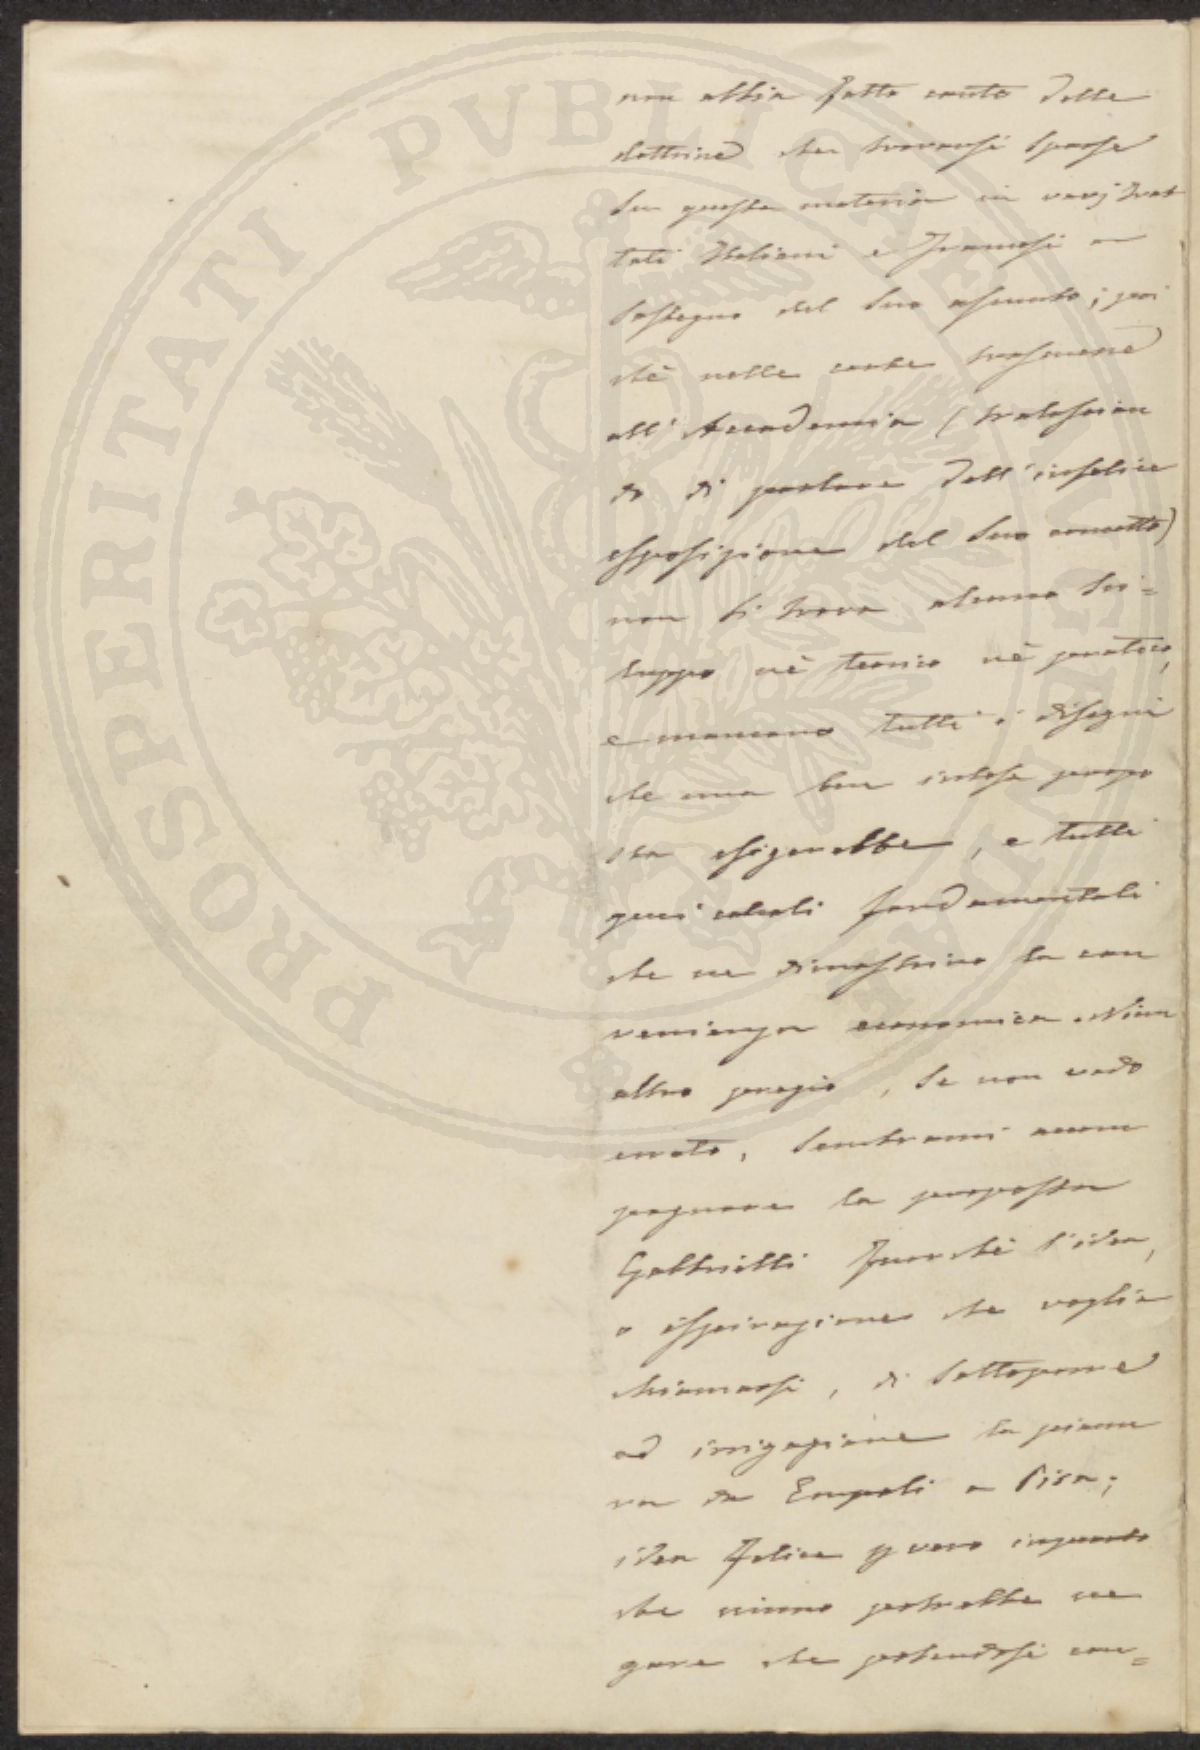 non abbia fatto conto delle
dottrine che trovansi sparse
su questa materia in varj trat
tati Italiani e Francesi a
sostegno del suo assunto; poi
chè nelle carte trasmesse
all'Accademia (tralascian
do di parlare dell'infelice
esposizione del suo concetto)
non si trova alcuno svi=
luppo nè teorico nè pratico,
e mancano tutti i disegni
che una ben intesa propo
sta esigerebbe, e tutti
quei calcoli fondamentali
che ne dimostrino la con
venienza economica. Niun
altro pregio, se non vado
errato, sembrami accom
pagnare la proposta
Gabbrielli fuorchè l'idea,
o ispirazione che voglia
chiamarsi, di sottoporre
ad irrigazione la pianu
ra da Empoli a Pisa;
idea felice però inquanto
che niuno potrebbe ne
gare che potendosi con=
PROSPERITATI PVBLICAE AVGENDAE